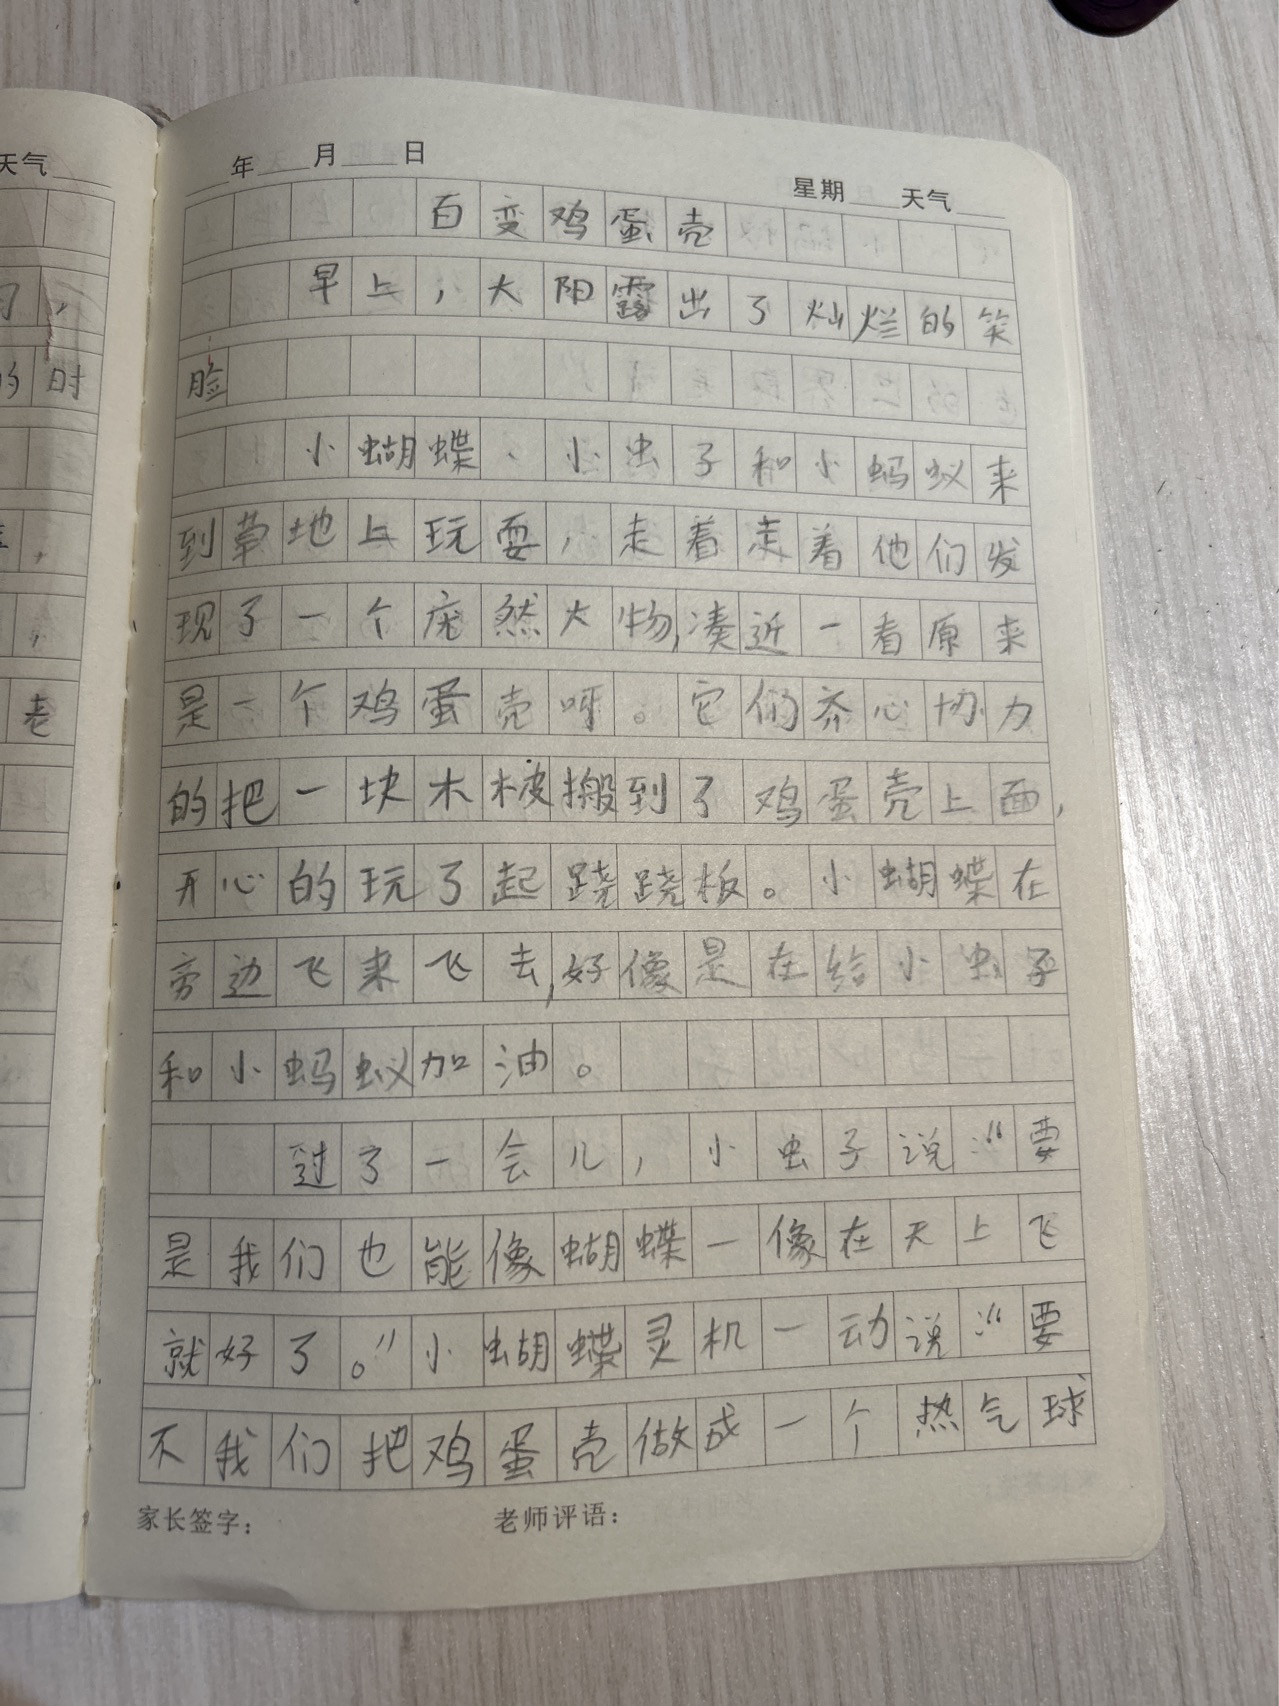 天气
年 月 日
星期 天气
百变鸡蛋壳
早上，大阳露出了灿烂的笑
脸
小蝴蝶、小虫子和小蚂蚁来
到草地上玩耍，走着走着他们发
现了一个庞然大物,凑近一看原来
是一个鸡蛋壳呀。它们齐心协力
的把一块木棱搬到了鸡蛋壳上面,
开心的玩了起跷跷板。小蝴蝶在
旁边飞来飞去,好像是在给小虫子
和小蚂蚁加油。
过了一会儿，小虫子说：“要
是我们也能像蝴蝶一像在天上飞
就好了。”小蝴蝶灵机一动说：“要
不我们把鸡蛋壳做成一个热气球
家长签字：
老师评语：
的时
老